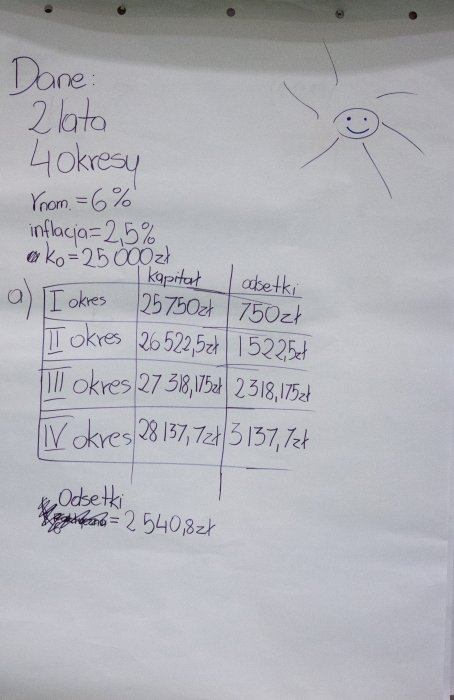 Dane:
2 lata
4 okresy
rnom. = 6%
inflacja = 2,5%
k0 = 25 000zł
kapitał odsetki
a) I okres 25750zł 750zł
II okres 26522,5zł 1522,5zł
III okres 27 318,175zł 2318,175zł
IV okres 28137,7zł 3137,7zł
Odsetki
= 2540,8zł